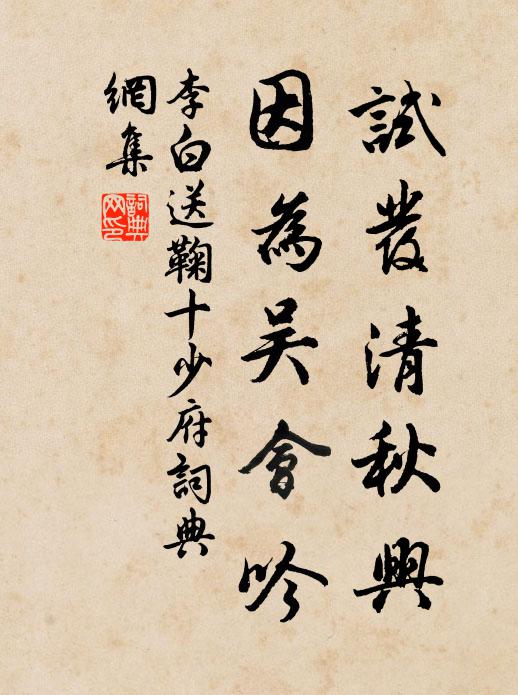 試發清秋興
因為吳會吟
李白送鞠十少府詞典
網集
詞典
网印